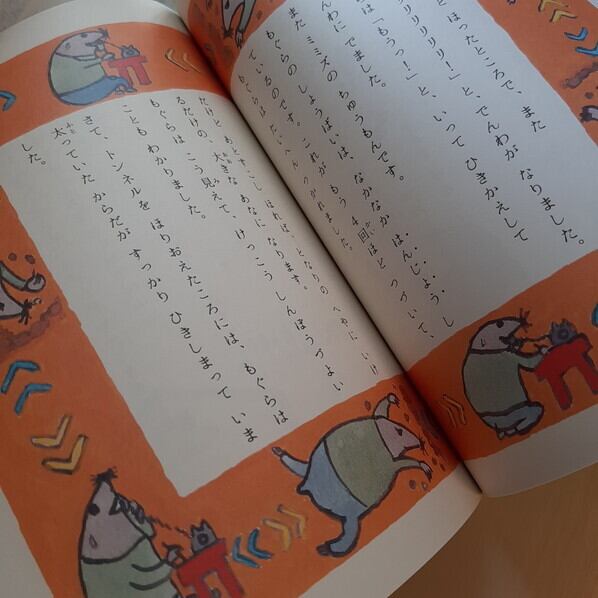 と ほったところで、また
リリリリリ！」と、でんわが なりました。
は「もうっ！」と、いって ひきかえして
んわに でました。
また ミミズの ちゅうもんです。
もぐらの しょうばいは、なかなか はんじょうし
ているのです。これが もう 4回ほど つづいて、
もぐらは たいへん つかれました。
すこし ほれば、となりの へやに いけ
るだけの、大きな あなに なります。
もぐらは こう見えて、けっこう しんぼうづよい
ことも わかりました。
さて、トンネルを ほりおえたころには、もぐらは
太っていた からだが すっかり ひきしまって いま
した。